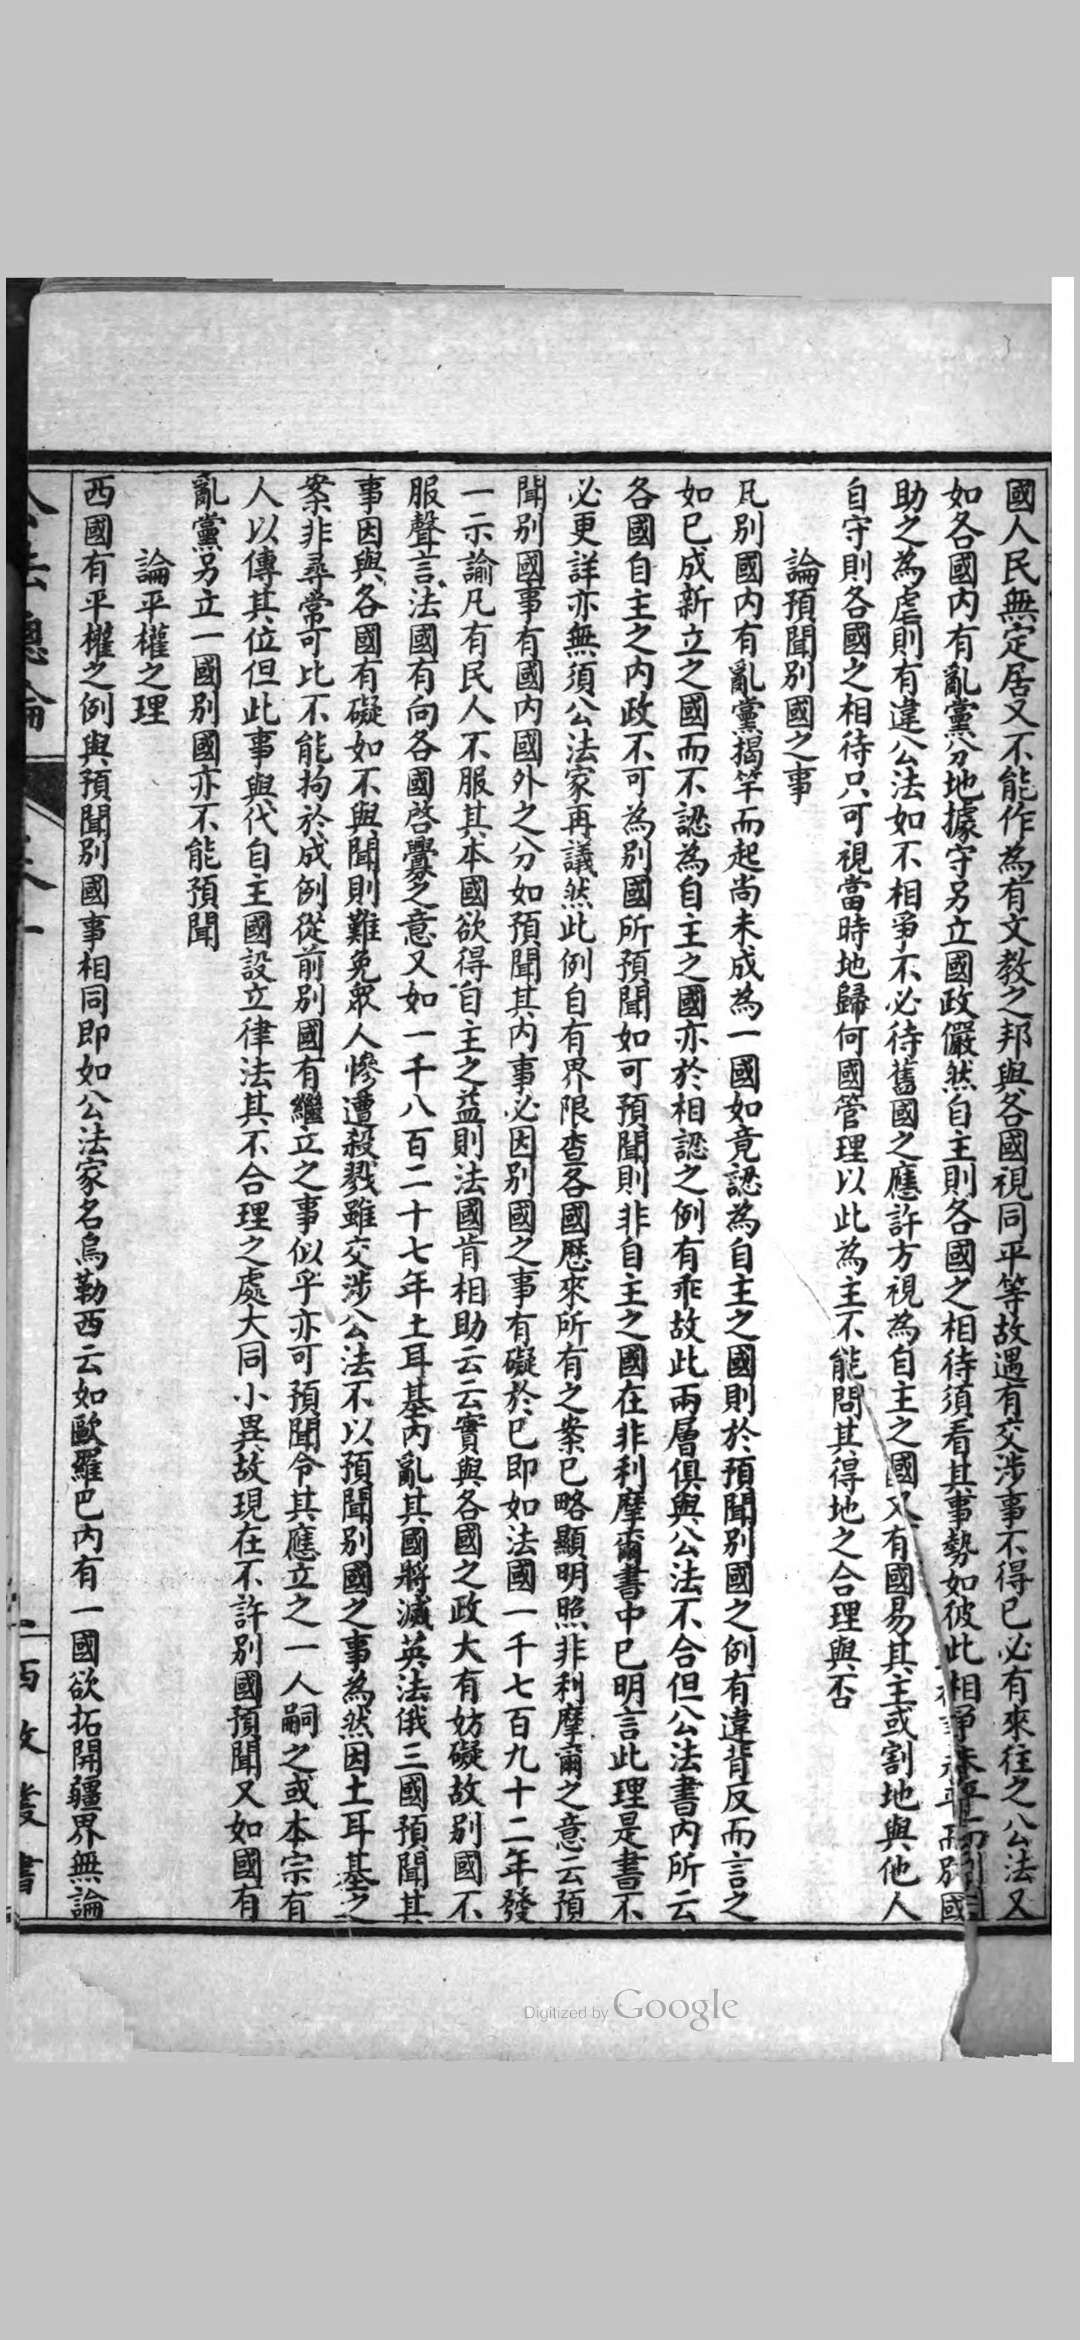 國人民無定居又不能作為有文教之邦與各國視同平等故遇有交涉事不得已必有來往之公法又
如各國內有亂黨分地據守另立國政儼然自主則各國之相待須看其事勢如彼此相爭未平而別國
助之為虐則有違公法如不相爭不必待舊國之應許方視為自主之國又有國易其主或割地與他人
自守則各國之相待只可視當時地歸何國管理以此為主不能問其得地之合理與否
論預聞別國之事
凡別國內有亂黨揭竿而起尚未成為一國如竟認為自主之國則於預聞別國之例有違背反而言之
如已成新立之國而不認為自主之國亦於相認之例有乖故此兩層俱與公法不合但公法書內所云
各國自主之內政不可為別國所預聞如可預聞則非自主之國在非利摩爾書中已明言此理是書不
必更詳亦無須公法家再議然此例自有界限查各國歷來所有之案已略顯明照非利摩爾之意云預
聞別國事有國內國外之分如預聞其內事必因別國之事有礙於已即如法國一千七百九十二年發
一示諭凡有民人不服其本國欲得自主之益則法國肯相助云云實與各國之政大有妨礙故別國不
服聲言法國有向各國啓釁之意又如一千八百二十七年土耳基內亂其國將滅英法俄三國預聞其
事因與各國有礙如不與聞則難免眾人慘遭殺戮雖交涉公法不以預聞別國之事為然因土耳基之
案非尋常可比不能拘於成例從前別國有繼立之事似乎亦可預聞令其應立之一人嗣之或本宗有
人以傳其位但此事與代自主國設立律法其不合理之處大同小異故現在不許別國預聞又如國有
亂黨另立一國別國亦不能預聞
論平權之理
西國有平權之例與預聞別國事相同即如公法家名烏勒西云如歐羅巴內有一國欲拓開疆界無論
公法總論
卷一
二西政叢書
Digitized by Google